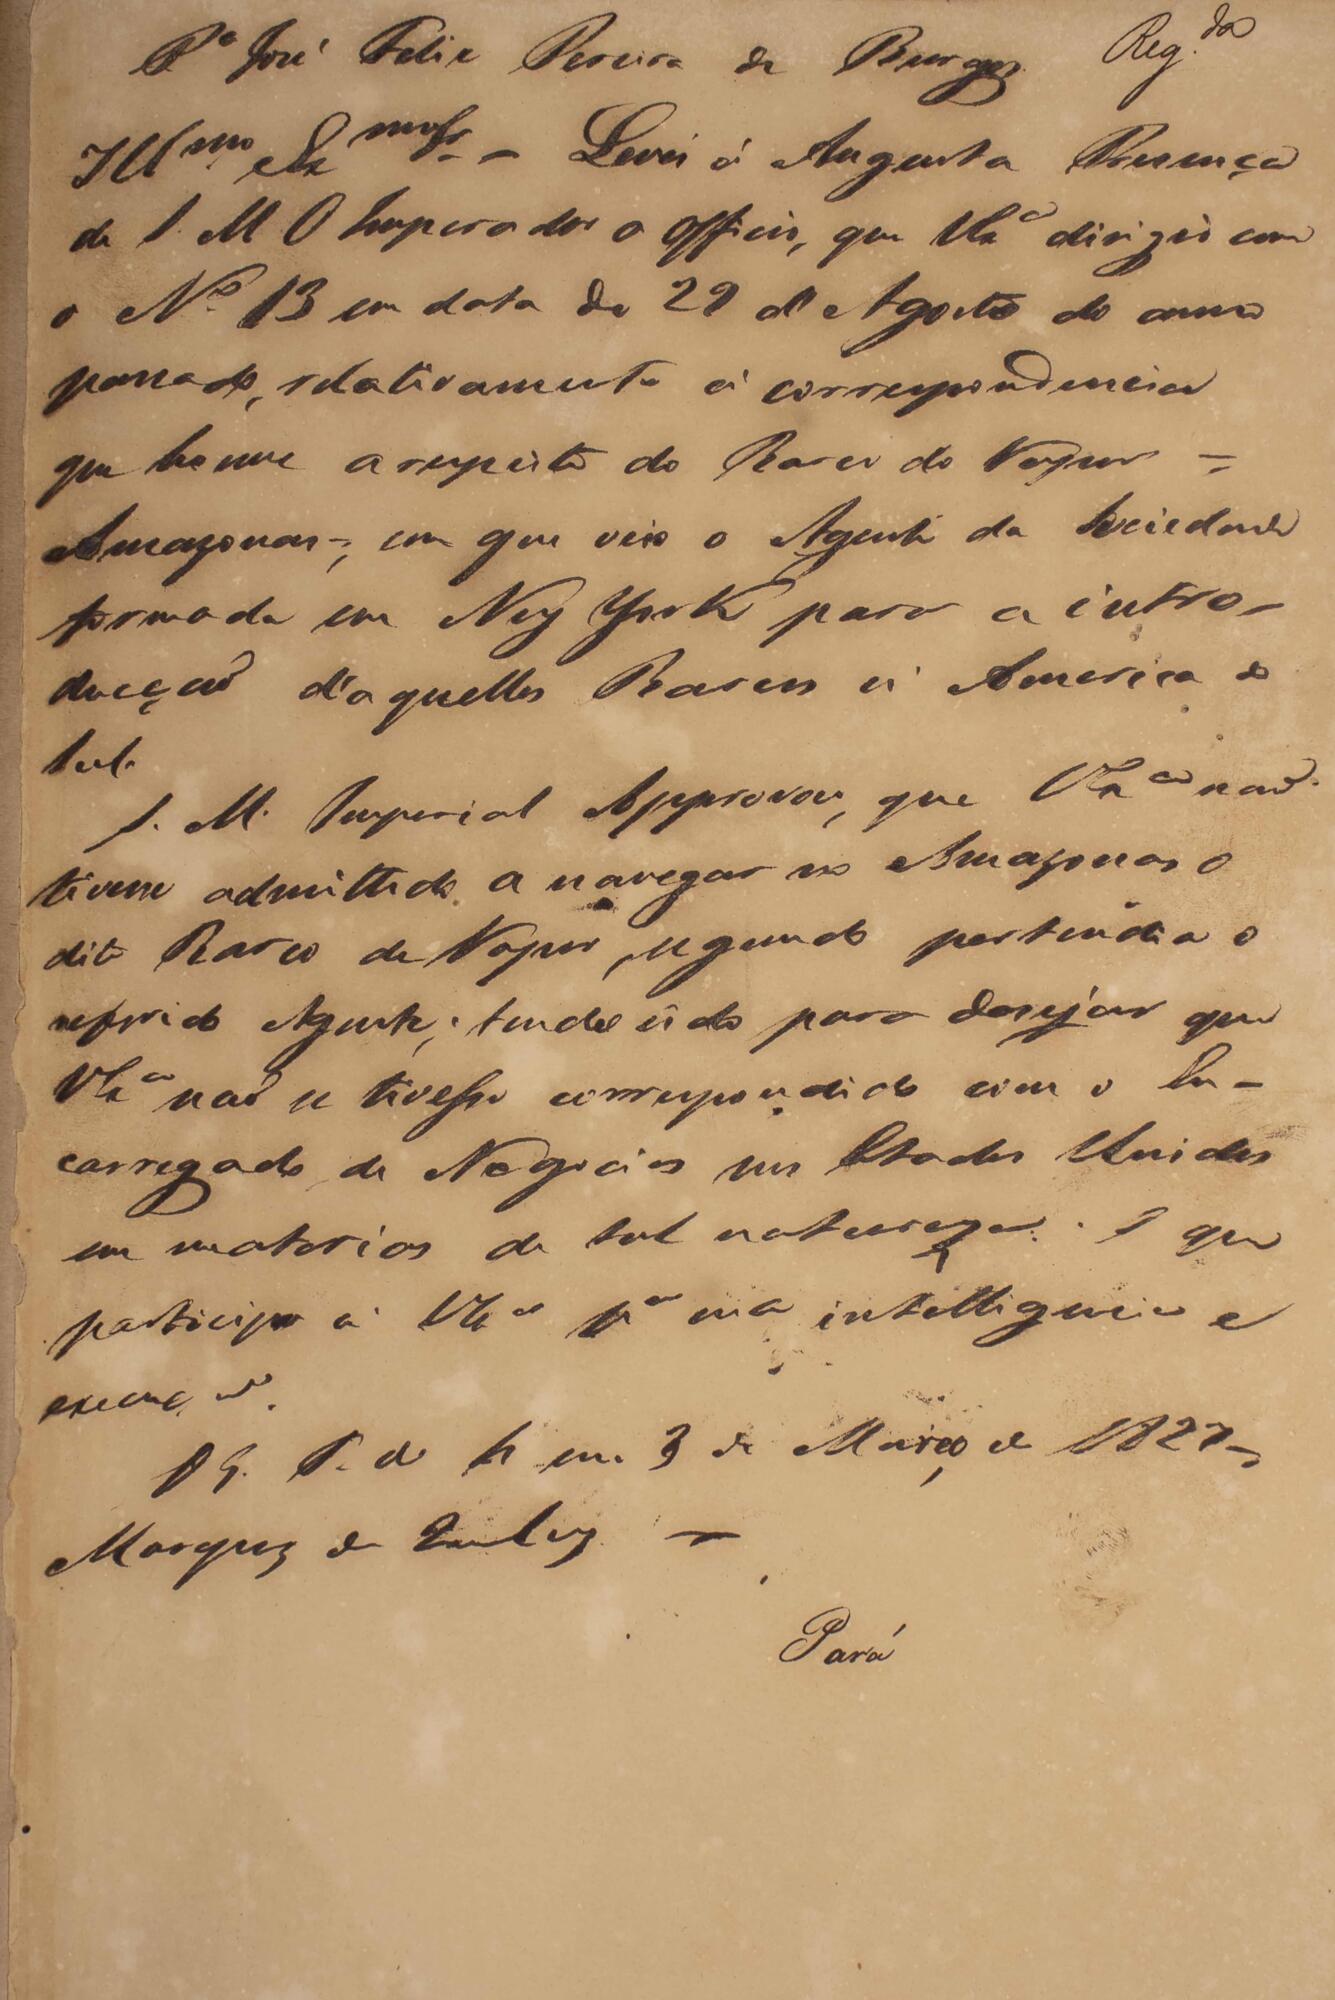 P.ª José Felix Pereira de Burgos Reg.da
Ill.mo Ex.mo Sr. - Levei á Augusta Presença
de S. M. O Imperador o officio, que V.Ex.ª dirigio com
o N.º 13 em data de 29 d'Agosto do anno
passado, relativamente á correspondencia
que houve a respeito do Barco do Vapor =
Amazonas =, em que veio o Agente da Sociedade
formada em New York para a intro-
ducção d'aquelles Barcos á America do
Sul.
S. M. Imperial Approvou, que V.Ex.cia naõ
tivesse admittido a navegar no Amazonas o
dito Barco de Vapor, segundo pertendia o
referido Agente; tendo sido para desejar que
V.Ex.cia naõ se tivesse correspondido com o En-
carregado de Negocios nos Estados Unidos
em materias de tal natureza. O que
participo a V.Ex.cia p.ª sua intelligencia e
execuçaõ.
D. G. P. do R. em 3 de Março de 1827 -
Marquez de Queluz -
Pará